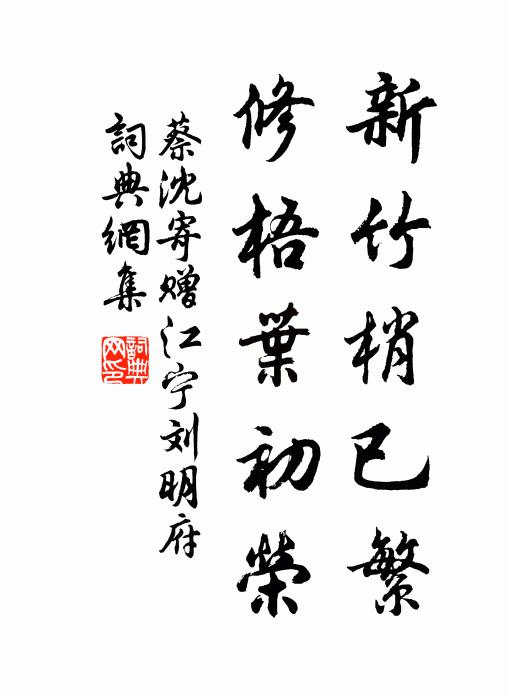 新竹梢已繁
修梧葉初榮
蔡沈寄赠江宁刘明府
詞典網集
詞典网印